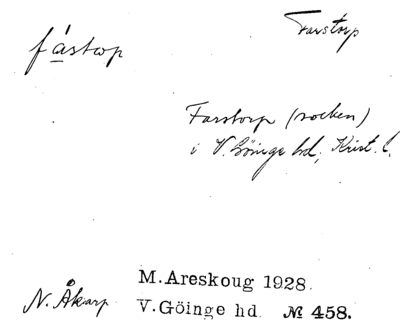 fástorp
Farstorp
Farstorp (socken)
i V. Göinge hd, Krist. l.
M. Areskoug 1928.
N. Åkarp
V. Göinge hd. № 458.